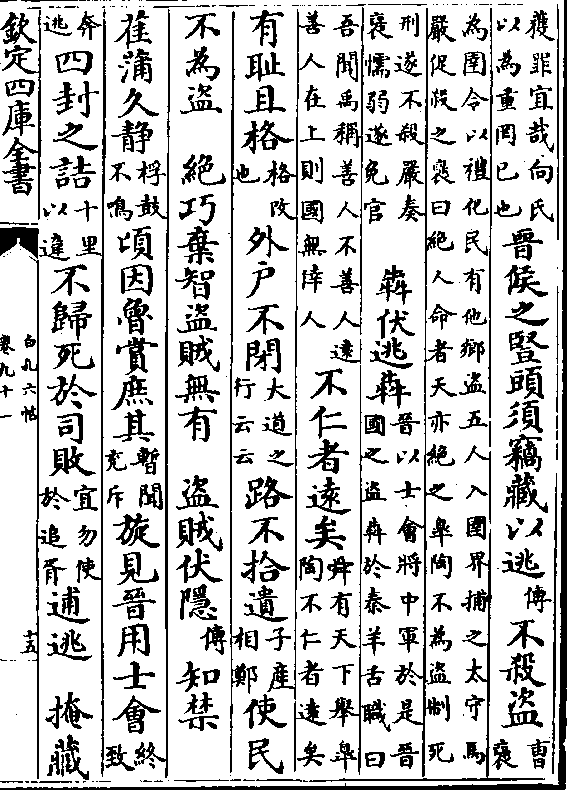 獲罪宜哉向氏以為重罔已也晉侯之豎頭須竊藏以逃傳不殺盗曹褒
為圉令以禮化民有他鄉盗五人入圉界捕之太守馬嚴促殺之褒曰絕人命者天亦絕之臯陶不為盗制死
刑遂不殺嚴奏褒懦弱遂免官 犇伏逃犇晉以士會將中軍於是晉國之盗犇於秦羊舌職曰
吾聞禹稱善人不善人遠善人在上則國無倖人 不仁者遠矣舜有天下舉臯陶不仁者遠矣
有耻且格格攺也 外户不閉大道之行云云 路不拾遺子產相鄭 使民
不為盗 絕巧棄智盗賊無有 盗賊伏隱傳 知禁
萑蒲久静桴鼓不鳴頃因魯賞庶其暫聞充斥旋見晉用士會終致
奔逃四封之詰十里以違不歸死於司敗宜勿使於追胥逋逃 掩藏
欽定四庫全書
白孔六帖
卷九十一
十五